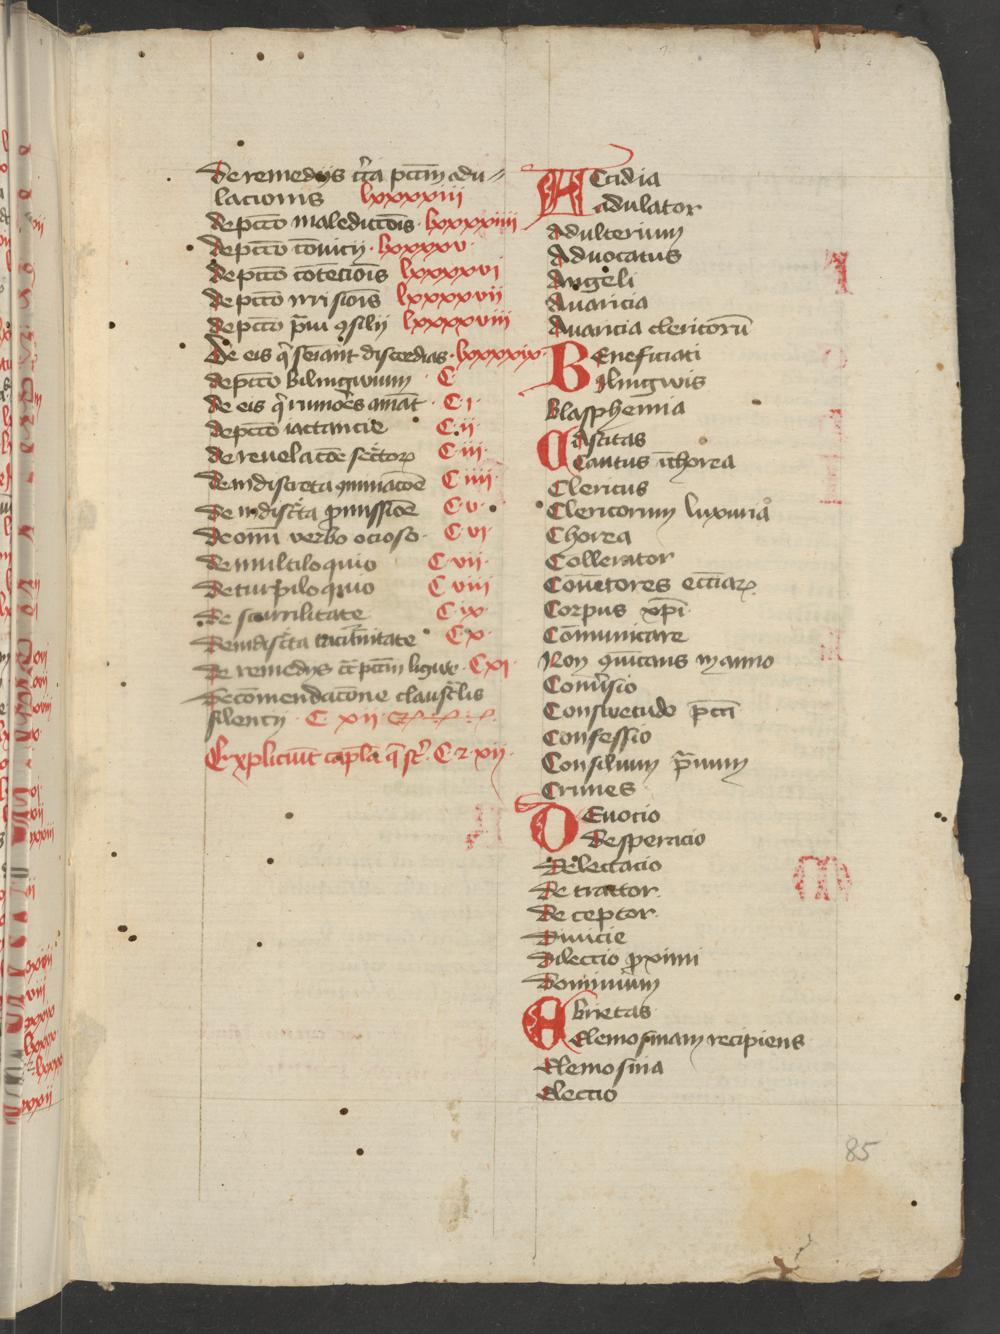 De remedijs ct̄a pctm̄ adu⸗
lacionis lxxxxiii
de pctō maledictōis · lxxxxiiii
de pctō cōuicij · lxxxxv ·
de pctō cōtēciōis lxxxxvi
de pctō irrisiōis lxxxxvii
de pctō p̄ui ꝯsilij lxxxxviii
De eis q̄ seīant discordias · lxxxxix ·
de pctō bilingwium · C ·
de eis q̄ rumōes amāt · C i ·
de pctō iactancie C · ii ·
de reuelacōe sec̄toꝝ C · iii ·
de indiscreta ꝯminacōe C · iiii ·
de indisc̄ta ꝓmissiōe C · v ·
de omī verbo ocioso · C · vi
de multiloquio C · vii ·
de turpiloquio C viii
de scurrilitate C ix
De indisc̄ta tacit̄nitate C x ·
de remedijs ct̄ pctm̄ ligwe · C xi
De cōmendacōne claust̄lis
silencij · C xii
Explic̄iut capl̄a q̄ st̄ · C z xij ·
ACcidia
adulator
Adulterium
Aduocatus
Angeli
Auaricia
Auaricia clericorū
BEneficiati
Bilingwis
Blasphemia
Castitas
Cantus ī chorea
Clericus
Clericorum luxuria
Chorea
Collerator
Cōuētores ecc̄iaꝝ
Corpus xp̄i
Cōmunicare
Non ꝯmunicans in anno
Conu̅sio
Conswetudo pctī
Confessio
Consilium p̄uum
Crines
DEuocio
desperacio
Delectacio
detractor
deceptor
Diuicie
Dilectio ꝓximi
Dominium
Ebrietas
Elemosinam recipiens
Elemosina
Electio
85